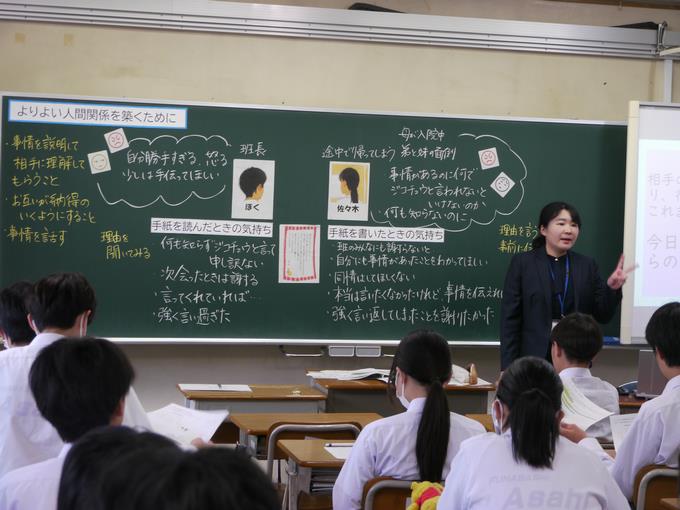 よりよい人間関係を築くために
・事情を説明して
相手に理解して
もらうこと
・お互いが納得の
いくようにすること
・事情を話す
理由を
聞いてみる
自分勝手すぎる、怒る
少しは手伝ってほしい
班長
ぼく
手紙を読んだときの気持ち
・何も知らずジコチュウと言って
申し訳ない
・次会ったときは謝る
・言ってくれていれば…
・強く言い過ぎた
母が入院中
途中で帰ってしまう 弟と妹の面倒
佐々木
事情があるのに何で
ジコチュウと言われないと
いけないのか
・何も知らないのに
手紙を書いたときの気持ち
・班のみんなにも謝りたい
・自分にも事情があったことをわかってほしい
・同情はしてほしくない
・本当は言いたくなかったけれど、事情を伝え
・強く言い返してしまったことを謝りたかった
理由を言う
事前に
相手の
り、
これま
今日
らの
FUNABASHI
Asaho